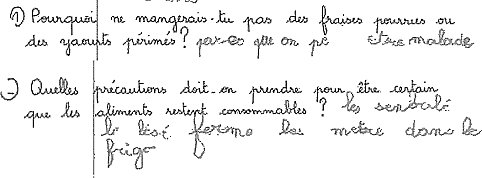 ① Pourquoi ne mangerais-tu pas des fraises pourries ou
des yaourts périmés ? par-ce que on pe etre malade
Quelles précautions doit-on prendre pour être certain
que les aliments restent consommables ? les
le lésé ferme les metre dans le
frigo